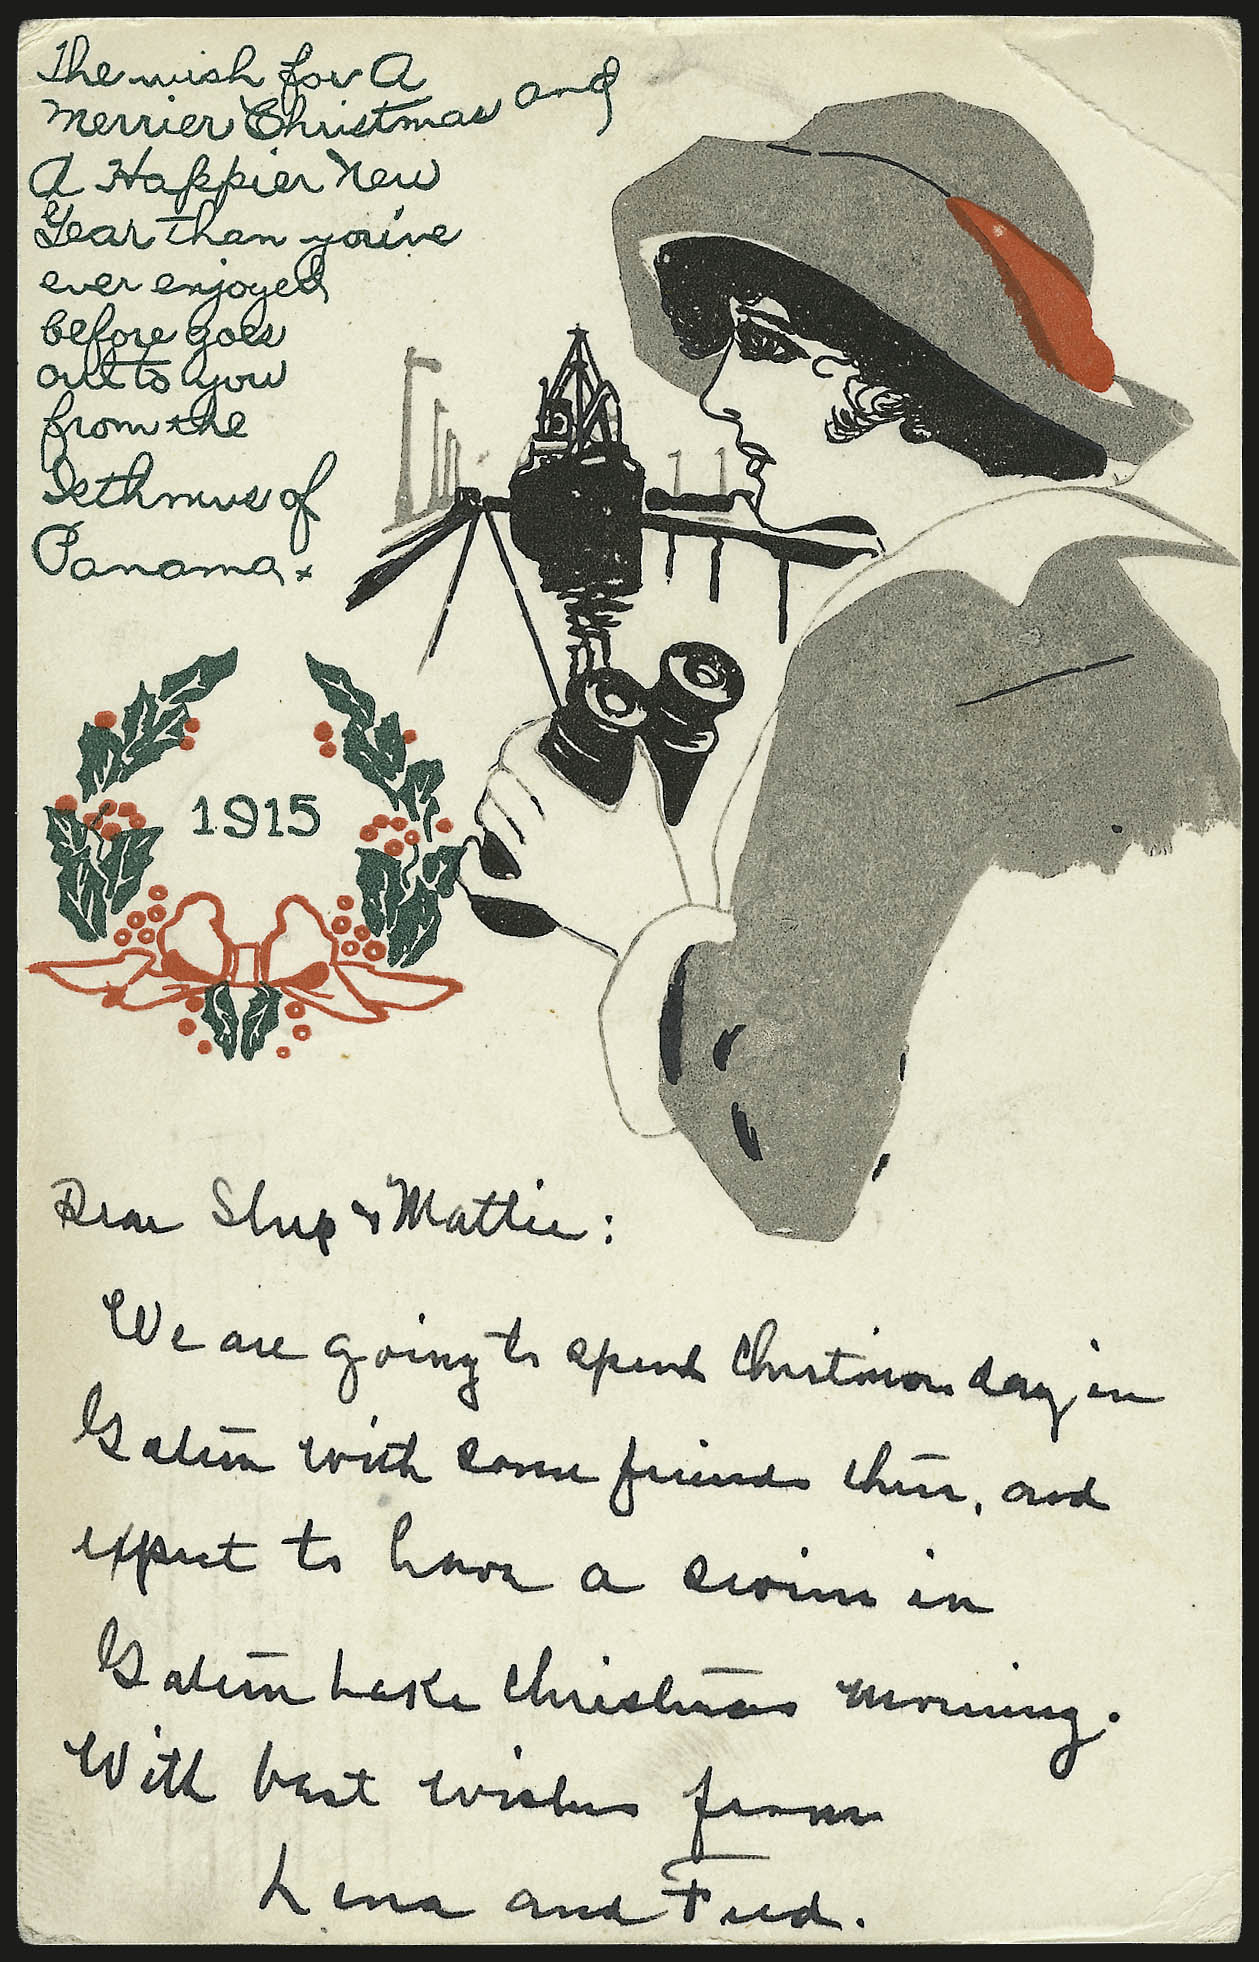 The wish for A
Merrier Christmas and
A Happier New
Year than you've
ever enjoyed
before goes
out to you
from the
Isthmus of
Panama.
1915
Dear Shep & Mattie:
We are going to spend Christmas day in
Gatun with some friends there, and
expect to have a swim in
Gatun Lake Christmas morning.
With best wishes from
Lena and Fred.